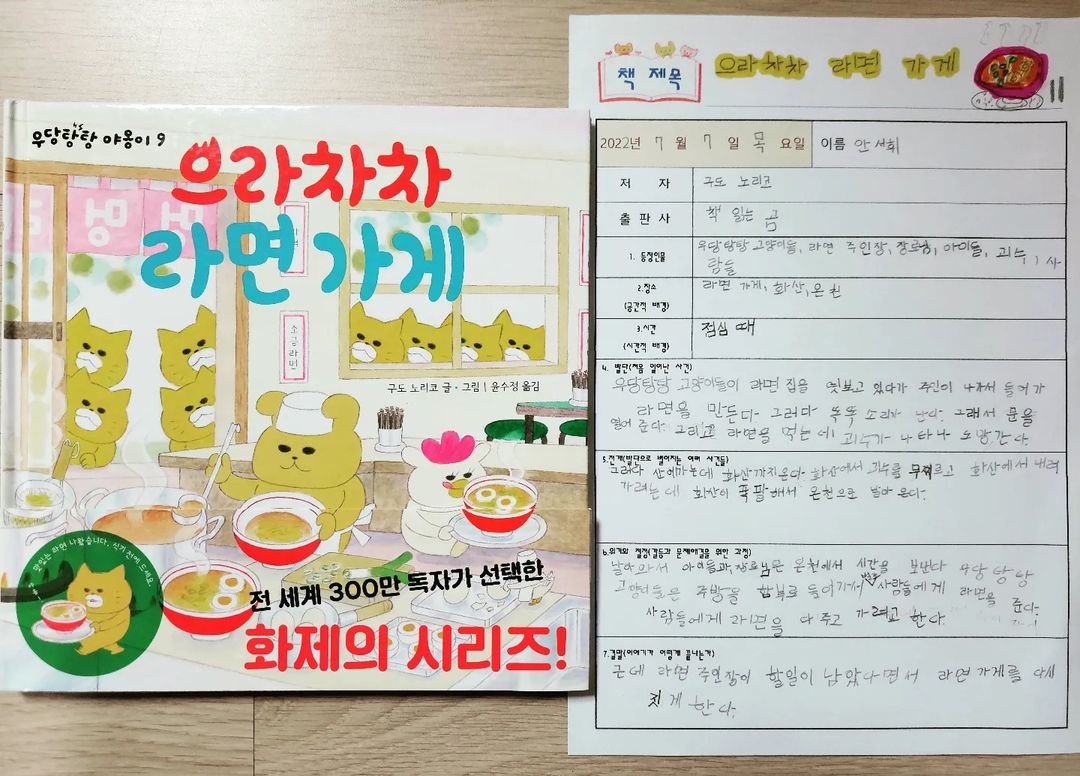 우당탕탕 야옹이 9
으라차차
라면 가게
멍멍
소금라면
구도 노리코 글·그림 | 윤수정 옮김
맛있는 라면 나왔습니다. 식기 전에 드세요.
전 세계 300만 독자가 선택한
화제의 시리즈!
책 제목
으라차차 라면 가게
2022년 7월 7일 목요일 이름 안서휘
저자 구도 노리코
출판사 책 읽는 곰
1. 등장인물
우당탕탕 고양이들, 라면 주인장, 장로님, 아이들, 괴수, 사
람들
2.장소
(공간적 배경)
라면 가게, 화산, 온천
3.시간
(시간적 배경)
점심 때
4. 발단(처음 일어난 사건)
우당탕탕 고양이들이 라면 집을 엿보고 있다가 주인이 나가서 들어가
라면을 만든다. 그러다 똑똑 소리가 난다. 그래서 문을
열어 준다. 그리고 라면을 먹는데 괴수가 나타나 도망간다.
5.전개(발단으로 벌어지는 여러 사건들)
그러다 산에 가는데 화산까지 온다. 화산에서 괴수를 무찌르고 화산에서 내려
가려는데 화산이 폭팔해서 온천으로 날아 온다.
6.위기와 절정(갈등과 문제해결을 위한 과정)
날아와서 아이들과 장로님은 온천에서 시간을 보낸다 우당탕탕
고양이들은 주방을 함부로 들어가서 사람들에게 라면을 준다.
사람들에게 라면을 다 주고 가려고 한다.
7.결말(이야기가 어떻게 끝나는가)
근데 라면 주인장이 할일이 남았다면서 라면 가게를 다시
짓게 한다.